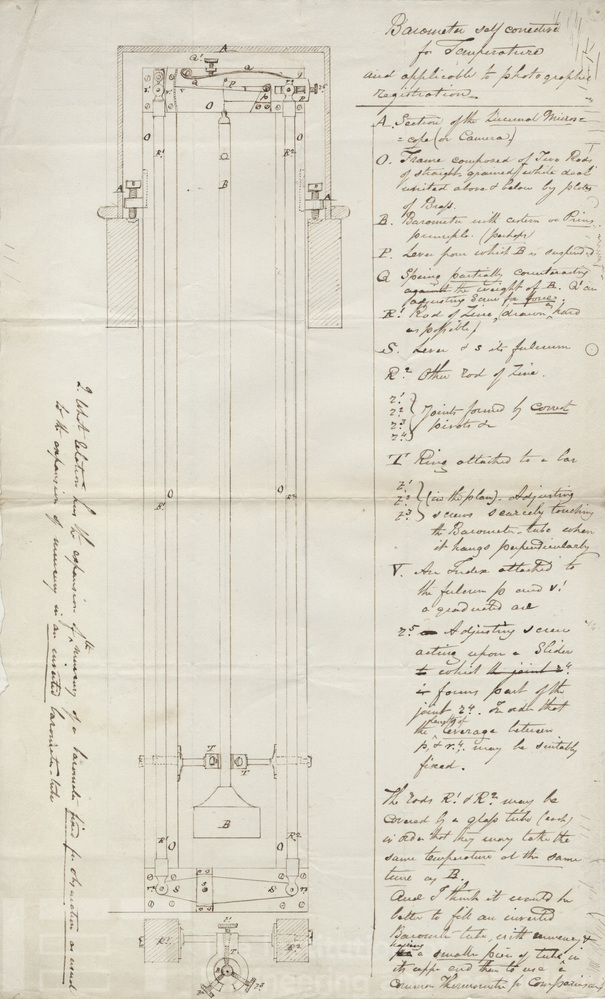 Barometer self corrective
for Temperature
and applicable to photographic
registration.
A. Section of the Decimal Micros=
=cope (or Camera)
O. Frame composed of Two Rods
of straight grained white deal
united above & below by plates
of Brass.
B. Barometer with cistern on
principle. (perhaps
P. Lever from which B is suspended
Q Spring partially counteracting
against the weight of B. Q' an
adjusting Screw for force.
R1 Rod of Zinc (drawn as hard
as possible)
S. Lever & s its fulcrum
R2 Other rod of Zinc.
r1
r2
r3
r4
Joints formed by correct
pivots &
T Ring attached to a bar
t1
t2
t3
(in the plan). Adjusting
screws scarcely touching
the Barometer-tube when
it hangs perpendicularly
V. An Index attached to
the fulcrum p and v'
a graduated arc
r5 Adjusting screw
acting upon a Slider
to which the joint r4
is forms part of the
joint r4. In order that
the length of leverage between
p & r4. may be suitably
fixed.
The rods R1 & R2 may be
covered by a glass tube (each)
in order that they may take the
same temperature at the same
time as B.
And I think it would be
better to fill an inverted
Barometer tube, with mercury &
having a smaller piece of tube in
its upper end than to use a
Common Thermometer for Comparison
? What relation has the expansion of the mercury of a barometer fixed for observation as usual
to the expansion of mercury in an inverted barometer-tube
A
Q'
Q
P
O
O
O
R1
R2
B
A
A
O
O
R1
R2
T
T
B
R1
R2
O
O
S
S
R1
R2
T